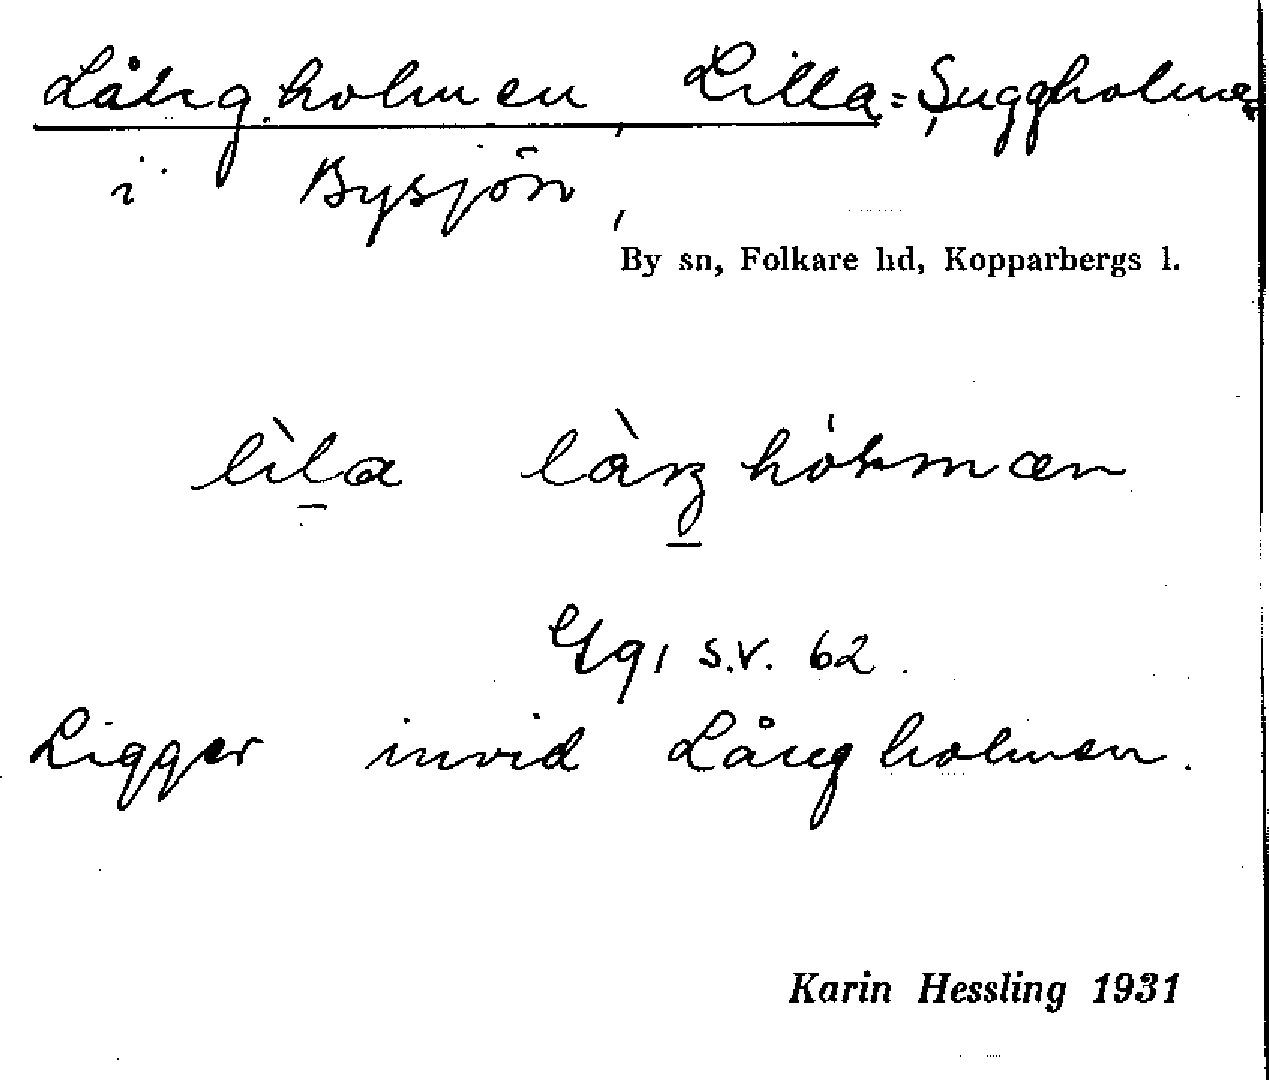 Långholmen, Lilla = Suggholmen
i Bysjön,
By sn, Folkare hd, Kopparbergs l.
lìla làŋhòlmæn
s.v. 62.
Ligger invid Långholmen.
Karin Hessling 1931